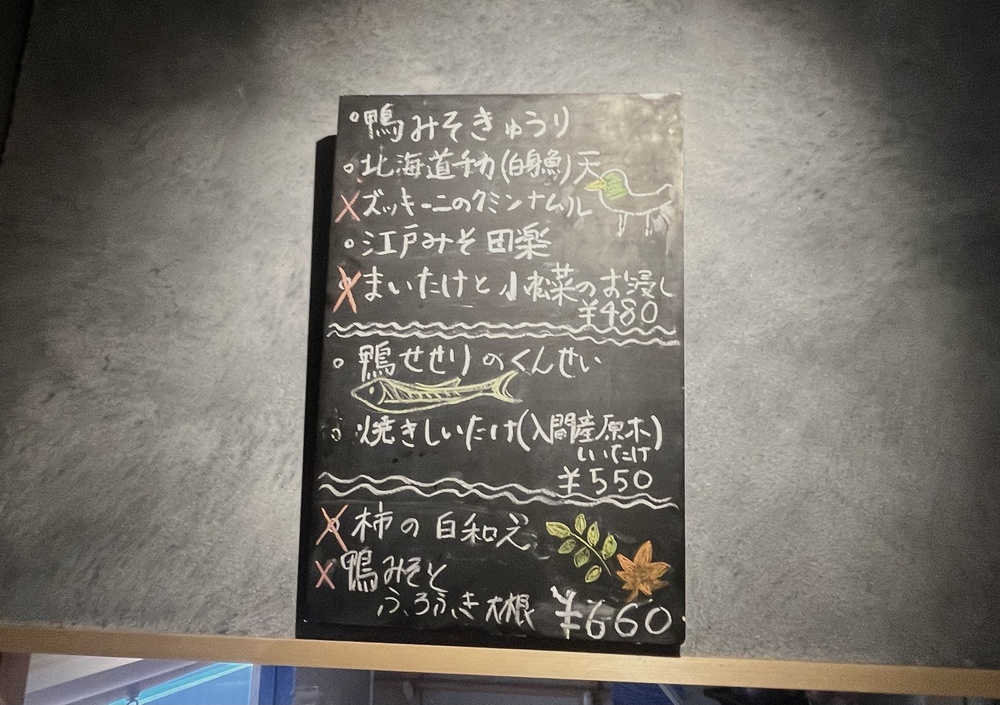 。鴨みそきゅうり
。北海道チカ(白身魚)天
×ズッキーニのクミンナムル
。江戸みそ田楽
×まいたけと小松菜のお浸し
¥480
。鴨せせりのくんせい
。焼きしいたけ(入間産原木)
しいたけ
¥550
×柿の白和え
×鴨みそと
ふろふき大根 ¥660